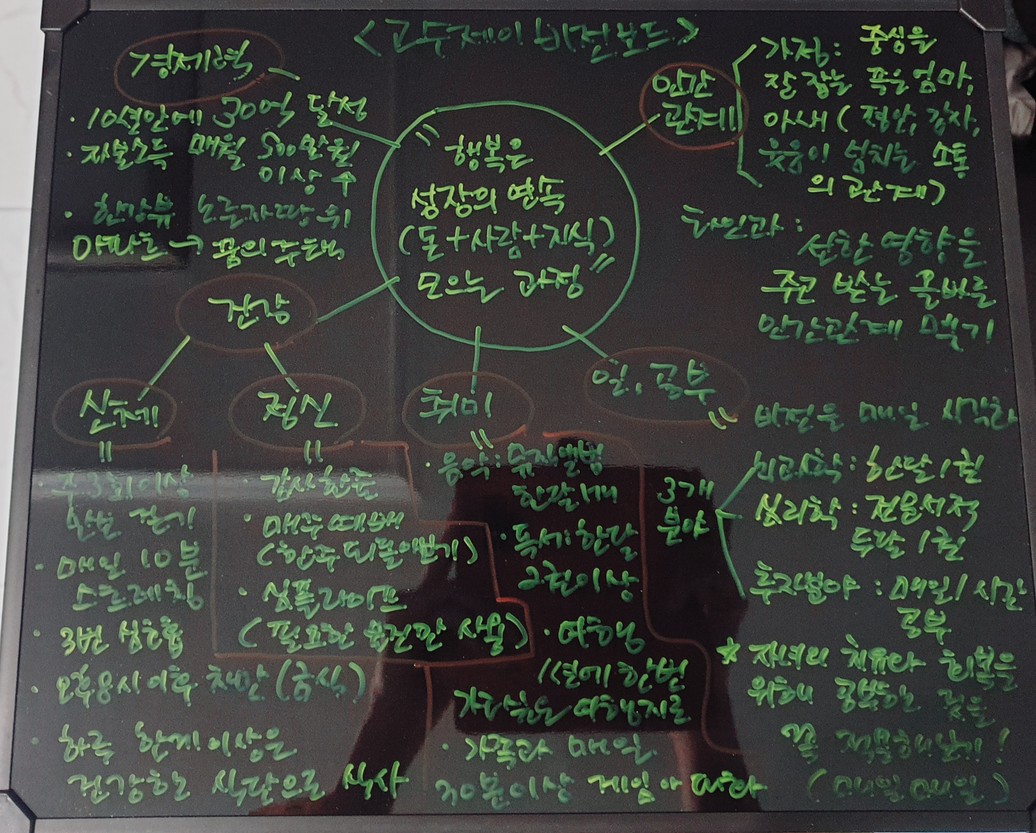 <고수제이 비전보드>
경제력
· 10년안에 30억 달성
· 자본소득 매월 500만원
이상 수
· 한강뷰 노른자땅 위
아파트 → 꿈의 주택
"행복은
성장의 연속
(돈+사람+지식)
모으는 과정"
인간
관계
가정: 중심을
잘 잡는 푹은엄마,
아내 (정, 감사,
웃음이 넘치는 소통
의 관계)
타인과:
선한 영향을
주고 받는 올바른
인간관계 맺기
건강
신체
주3회이상
한시간 걷기
· 매일 10분
스트레칭
· 3번 심호흡
· 오후8시이후 차만 (금식)
· 하루 한끼이상은
건강하는 식단으로 식사
정신
· 감사한줄
· 매주
(한주 되돌아보기)
· 심플라이프
(필요한 물건만 사용)
취미
· 음악: 뮤직앨범
한달1개
· 독서: 한달
2권이상
· 여행
1년에 한번
가고싶은 여행지로
· 가족과 매일
30분이상 게임이나 대화
일, 공부
비전을 매일 시각화
3개
분야
뇌과학: 한달1권
심리학: 전용서적
두달 1권
투자분야: 매일1시간
공부
* 자녀의 치유와 회복을
위해 공부하는 것을
꼭 적용해보기!
(매일매일)